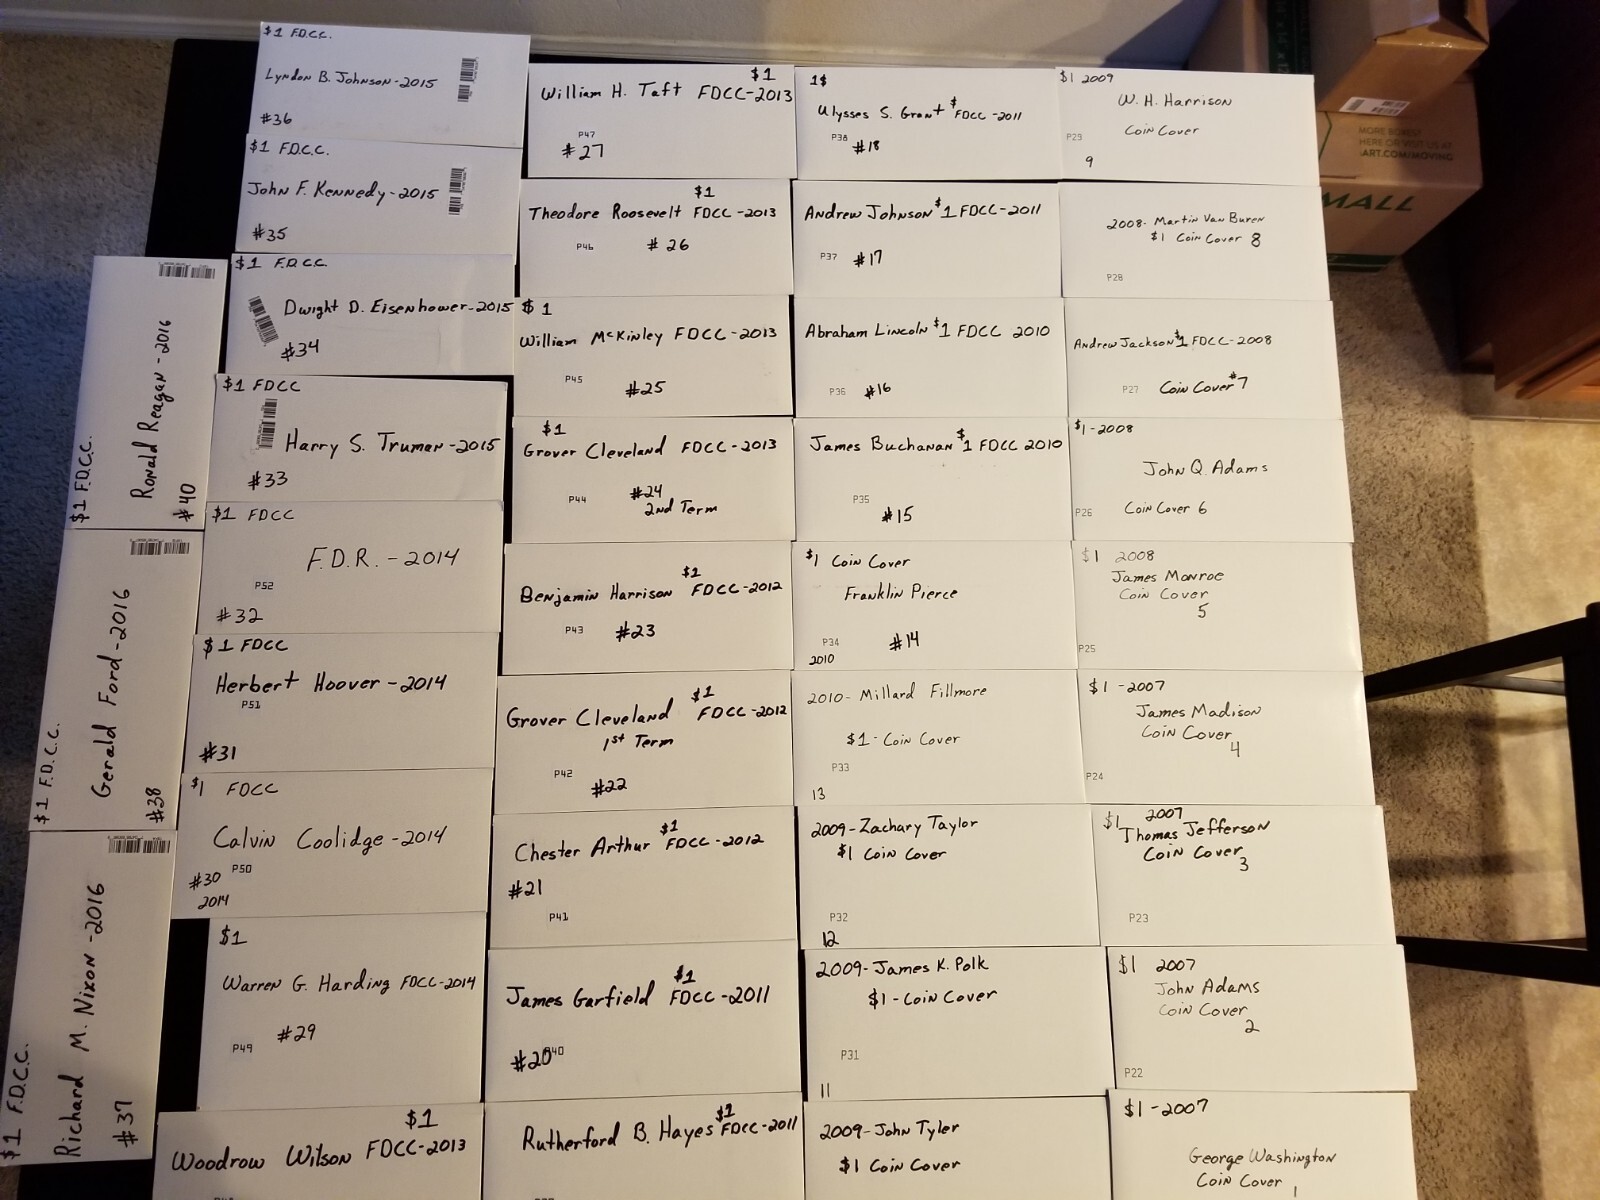 $1 F.D.C.C.
Lyndon B. Johnson-2015
#36
$1 F.D.C.C.
John F. Kennedy-2015
#35
$1 F.D.C.C.
Dwight D. Eisenhower-2015
#34
$1 FDCC
Harry S. Truman-2015
#33
$1 FDCC
F.D.R. - 2014
P52
#32
$1 FDCC
Herbert Hoover - 2014
P51
#31
$1 FDCC
Calvin Coolidge - 2014
#30 P50
2014
$1
Warren G. Harding FDCC-2014
#29
P49
$1
Woodrow Wilson FDCC-2013
$1 F.D.C.C.
Ronald Reagan - 2016
#40
$1 F.D.C.C.
Gerald Ford - 2016
#38
$1 F.D.C.C.
Richard M. Nixon - 2016
#37
$1
William H. Taft FDCC-2013
P47
#27
$1
Theodore Roosevelt FDCC-2013
P46 #26
$1
William McKinley FDCC-2013
P45 #25
$1
Grover Cleveland FDCC-2013
P44 #24
2nd Term
$1
Benjamin Harrison FDCC-2012
P43 #23
$1
Grover Cleveland FDCC-2012
1st Term
P42
#22
$1
Chester Arthur FDCC-2012
#21
P41
$1
James Garfield FDCC-2011
#20 40
$1
Rutherford B. Hayes FDCC-2011
1$
Ulysses S. Grant $ FDCC-2011
P38 #18
Andrew Johnson $1 FDCC-2011
P37 #17
Abraham Lincoln $1 FDCC 2010
P36 #16
James Buchanan $1 FDCC 2010
P35
#15
$1 Coin Cover
Franklin Pierce
P34 #14
2010
2010- Millard Fillmore
$1- Coin Cover
P33
13
2009-Zachary Taylor
$1 Coin Cover
P32
12
2009-James K. Polk
$1-Coin Cover
P31
11
2009-John Tyler
$1 Coin Cover
$1 2009
W. H. Harrison
Coin Cover
P29
9
2008- Martin Van Buren
$1 Coin Cover 8
P28
Andrew Jackson $1 FDCC-2008
P27 Coin Cover #7
$1-2008
John Q. Adams
P26 Coin Cover 6
$1 2008
James Monroe
Coin Cover
5
P25
$1-2007
James Madison
Coin Cover
4
P24
$1 2007
Thomas Jefferson
Coin Cover
3
P23
$1 2007
John Adams
Coin Cover
2
P22
$1-2007
George Washington
Coin Cover 1
MORE BOXES?
HERE OR VISIT US AT
ART.COM/MOVING
MALL